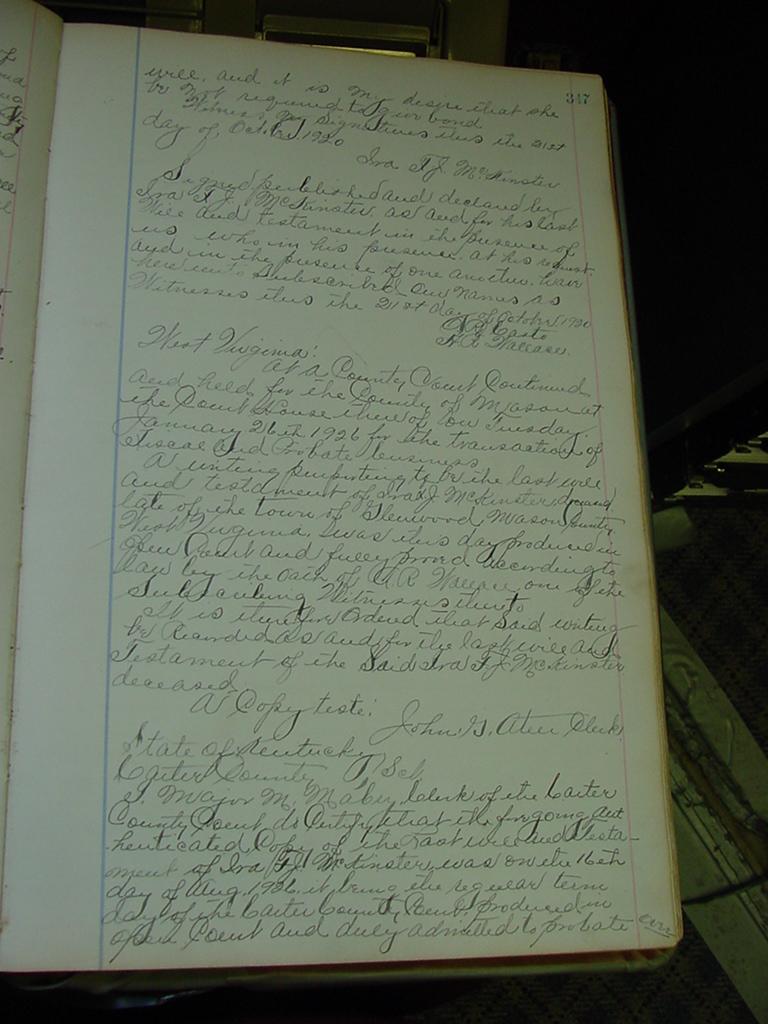 347
will, and it is my desire that she
be not required to give bond
Witness my signatures this the 21st
day of, Octo. 1920
Ira T.J. McKinster
Signed published and declared by
Ira T.J. McKinster, as and for his last
Will and testament in the presence of
us who in his presence, at his request
and in the presence of one another, have
hereunto Subscribed our names as
Witnesses this the 21st day of October 1920
Casto
A.R. Wallace.
West Virginia:
At a County Court Continued
and held for the County of Mason at
the Court House thereof on Tuesday
January 26th 1926 for the transaction of
Fiscal and Probate business
A writing purporting to be the last will
and testament of Ira T.J. McKinster, deceased
late of the town of Glenwood Mason County
West Virginia, was this day produced in
Open Court and fully proved according to
law by the oath of A.R. Wallace one of the
Subscribing Witnesses thereto
It is therefore Ordered that said writing
be Recorded as and for the last will and
Testament of the Said Ira T.J. McKinster
deceased
A Copy teste:
John G. Aten Clerk.
State of Kentucky
Carter County Sct
I, Major M. Mabry, Clerk of the Carter
County Court do Certify that the forgoing aut
-henticated Copy of the Last will and Testa-
ment of Ira T.J. McKinster was on the 16th
day of Aug. 1926, it being the regular term
day of the Carter County Court, Produced in
open Court and duly admitted to probate